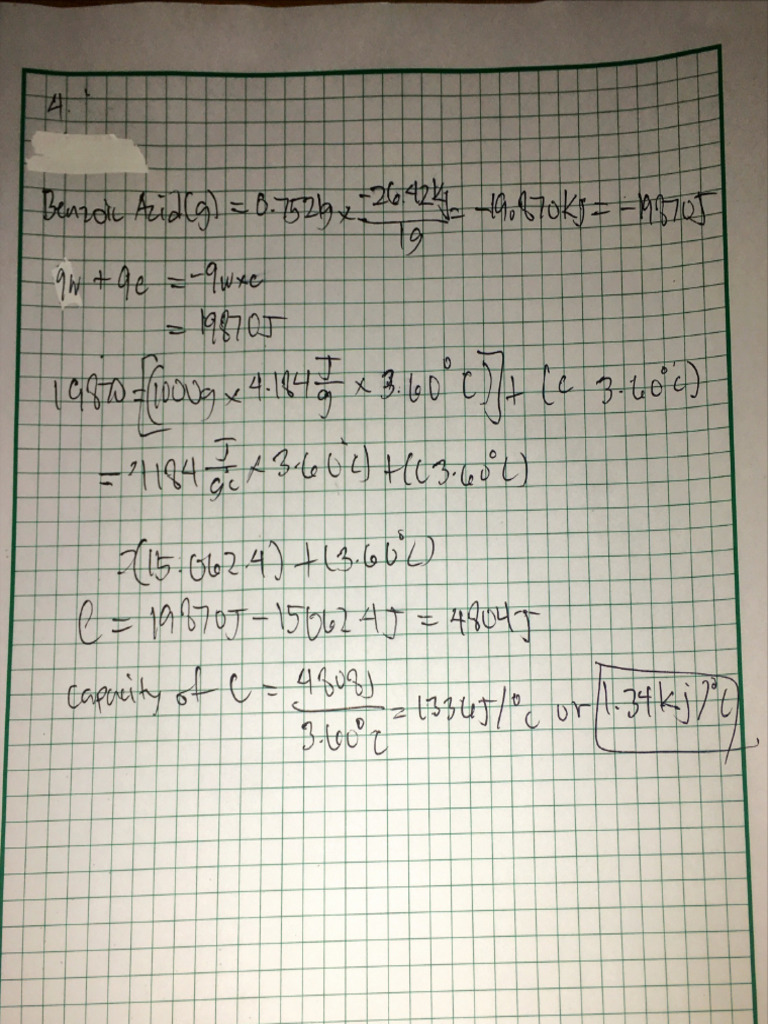 4.
Benzoic Acid(g) = 0.752g x -26.42kj / 1g = -19.870KJ = -19870J
qw + qc = -qwxc
= 19870J
19870 = [(1000g x 4.184 J/g x 3.60°C)] + (C 3.60°C)
= 4184 J/g°C x 3.60°C) + (C 3.60°C)
= (15.062.4) + (3.60°C)
C = 19870J - 15062.4J = 4804J
capacity of C = 4808J / 3.60°C = 1336J/°C or 1.34kj/°C